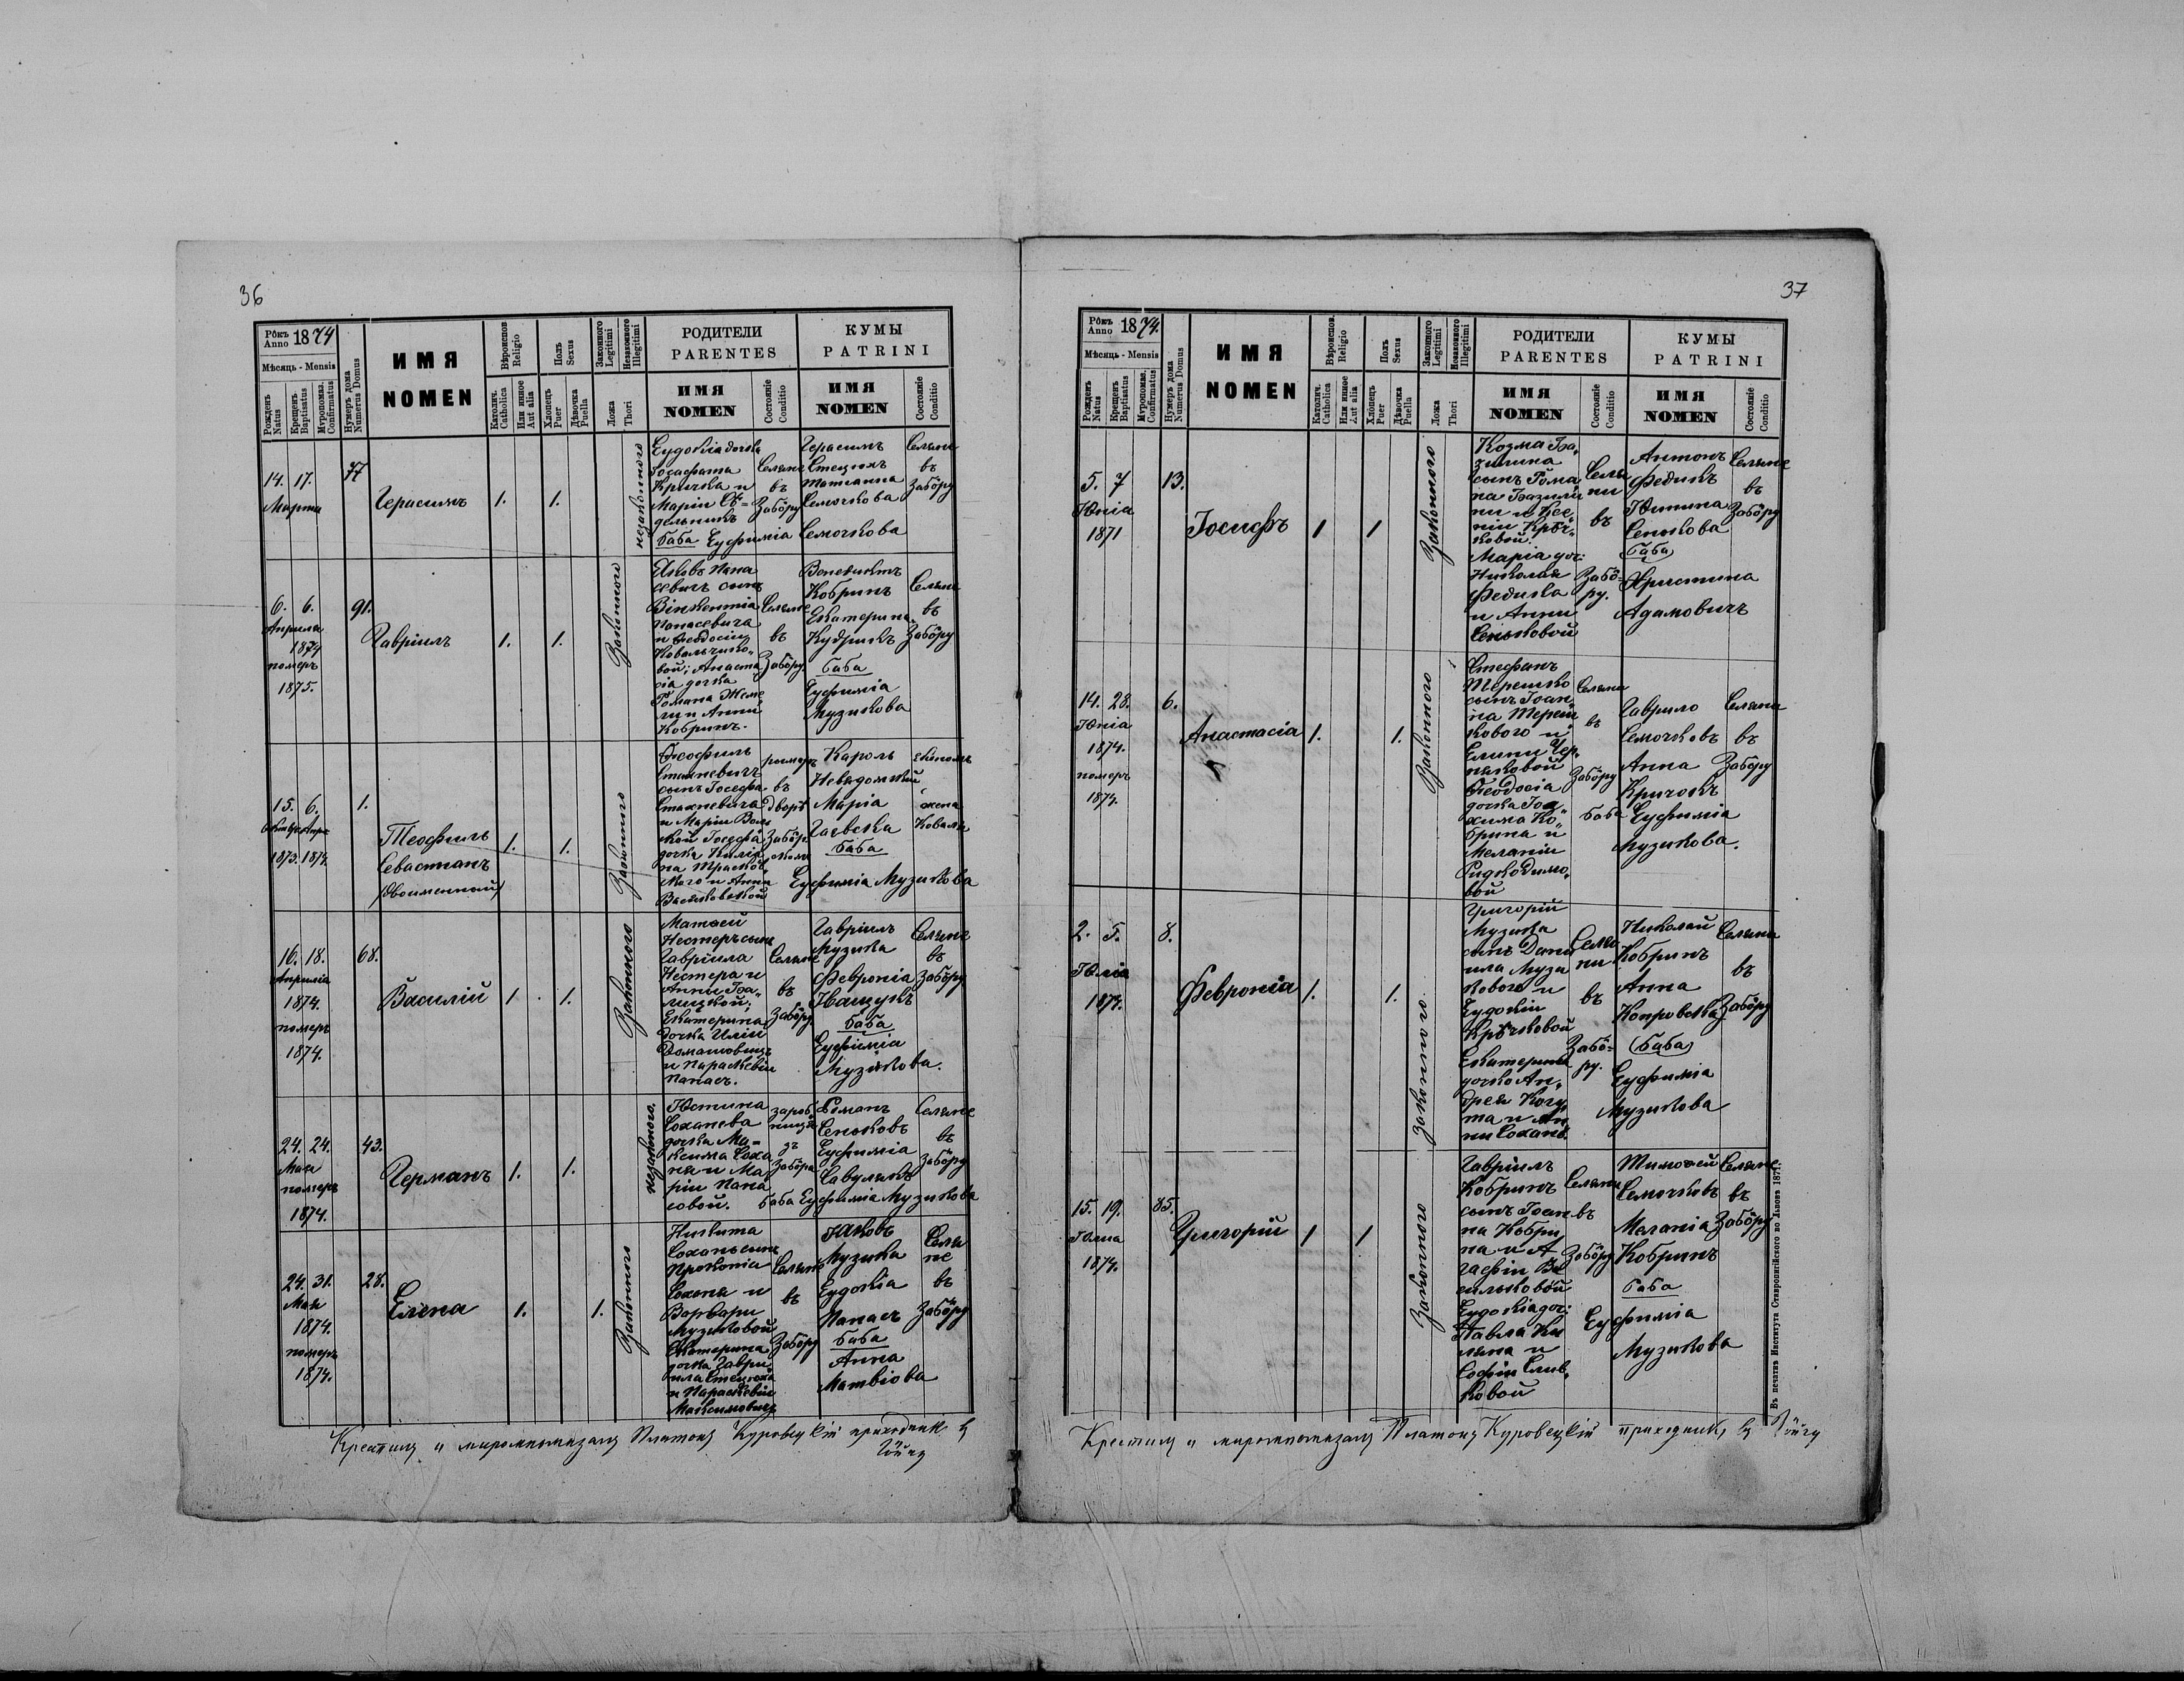 36
Рôкъ Anno 1874
Мѣсяць - Mensis
Рожденъ Natus
Крещенъ Baptisatus
Мѵропомаз. Confirmatus
Нумеръ дома Numerus Domus
ИМЯ
NOMEN
Вѣроиспов. Religio
Католич. Catholica
Или инное Aut alia
Полъ Sexus
Хлопецъ Puer
Дѣвочка Puella
Законного Legitimi
Незаконного Illegitimi
Ложа Thori
РОДИТЕЛИ
PARENTES
ИМЯ
NOMEN
Состояніе Conditio
КУМЫ
PATRINI
ИМЯ
NOMEN
Состояніе Conditio
14. 17. 77
Марта
Герасимъ 1. 1.
незаконного
Еудокіа дочка
Іосафата
Кричка и
Маріи
баба Еуфиміа Семочкова
Селяне
въ
Забôру
Герасимъ
Стецюкъ
Татіанна
Семочкова
Селяне
въ
Забôру
6. 6. 91.
Априла
1874
померъ
1875.
Гавріилъ 1. 1.
Законного
Яковъ Пана
севичъ сынъ
Вікентіа
Панасевича
и Феодосіи
Ковальчико„
вой; Анаста
сіа дочка
Романа
и Анни
Кобринъ.
Селяне
въ
Забôру
Венедиктъ
Кобринъ
Екатерина
Кудрикъ
баба
Еуфиміа
Музикова
Селяне
въ
Забôру
15. 6. 1.
1873. 1874.
Теофилъ
Севастианъ
(двоименный)
1. 1.
Законного
Феофилъ
Стахневичъ
сынъ Іосефа
Стахневича
и Маріи
дочка
и Анни
въ
дворѣ
Забôр.
Кароль
Невядомскій
Маріа
Гаевска
баба
Еуфиміа Музикова
економъ
жена
Коваля
16. 18. 68.
Априліа
1874.
померъ
1874.
Василій 1. 1.
Законного
Матѳей
Нестеръ сынъ
Гавріила
Нестера и
Анни Га„
лицкой;
Екатерина
дочка Иліи
Домашовичъ
и Параскевіи
Панасъ.
Селяне
въ
Забôру
Гавріилъ
Музика
Февроніа
Иващукъ
баба
Еуфиміа
Музикова.
Селяне
въ
Забôру
24. 24. 43.
Маіа
померъ
1874.
Германъ 1. 1.
незаконного.
Юстина
Соханева
дочка Ма=
ксима Соха
ня и Ма
ріи Пана
совой.
зъ
Забôра
Романъ
Сеньковъ
Еуфиміа
Савулякъ
баба Еуфиміа Музикова
Селяне
въ
Забôру
24. 31. 28.
Маія
1874.
померъ
1874.
Елена 1. 1.
Законного
Никита
Сохань сынъ
Прокопіа
Соханя и
Варвари
Музиковой
Екатерина
дочка Гаври
ила Стецюка
и Параскевіи
Максимовичъ
Селяне
въ
Забôру
Яковъ
Музика
Еудокіа
Панасъ
баба
Анна
Матвіова
Селя
не
въ
Забôру
Крестилъ и миропомазалъ Платонъ Куровецкій приходникъ въ
37
Рôкъ Anno 1874.
Мѣсяць - Mensis
Рожденъ Natus
Крещенъ Baptisatus
Мѵропомаз. Confirmatus
Нумеръ дома Numerus Domus
ИМЯ
NOMEN
Вѣроиспов. Religio
Католич. Catholica
Или инное Aut alia
Полъ Sexus
Хлопецъ Puer
Дѣвочка Puella
Законного Legitimi
Незаконного Illegitimi
Ложа Thori
РОДИТЕЛИ
PARENTES
ИМЯ
NOMEN
Состояніе Conditio
КУМЫ
PATRINI
ИМЯ
NOMEN
Состояніе Conditio
5. 7 13.
Юніа
1871
Іосифъ 1 1
Законного
Козма
сынъ Рома
на
ковой.
Маріа доч:
Николая
Федика
и Анни
Сеньковой
Селя
ни
въ
Забô=
ру.
Антонъ
Федикъ
Юстина
Сенькова
баба
Христина
Адамовичъ
Селяне
въ
Забôру
14. 28. 6.
Юніа
1874.
померъ
1874.
Анастасіа 1. 1.
Законного
Стефанъ
Терешко
сынъ Іоан„
на Тереш
кового и
Елини Чер„
няковой
Феодосіа
дочка Іоа
кима Ко„
брина и
Меланіи
вой
Селяни
въ
Забôру
баба
Гаврило
Семочковъ
Анна
Кричокъ
Еуфиміа
Музикова.
Селяни
въ
Забôру
2. 5. 8.
Юліа
1874.
Февроніа 1. 1.
законного.
Григорій
Музика
сынъ Дани
ила Музи
кового и
Еудокіи
Крѣчковой
Екатерина
дочка Ан„
дрея Когу
та и Ан
ни Сохань.
Селя
ни
въ
Забô=
ру.
Николай
Кобринъ
Анна
Копровска
(баба)
Еуфиміа
Музикова
Селяни
въ
Забôру
15. 19. 85.
Юліа
1874.
Григорій 1 1
Законного
Гавріилъ
Кобринъ
сынъ Іоан
на Кобри
на и А
гафіи Ва
сильковой
Еудокіа доч:
Павла Ки
ляна и
Софіи Слив„
ковой
Селяни
въ
Забôру
Тимоѳей
Семочковъ
Меланіа
Кобринъ
баба
Еуфиміа
Музикова
Селяне
въ
Забôру
Крестилъ и миропомазалъ Платонъ Куровецкій приходникъ въ
Въ печатнѣ Института Ставропигійского во Львовѣ 1871.